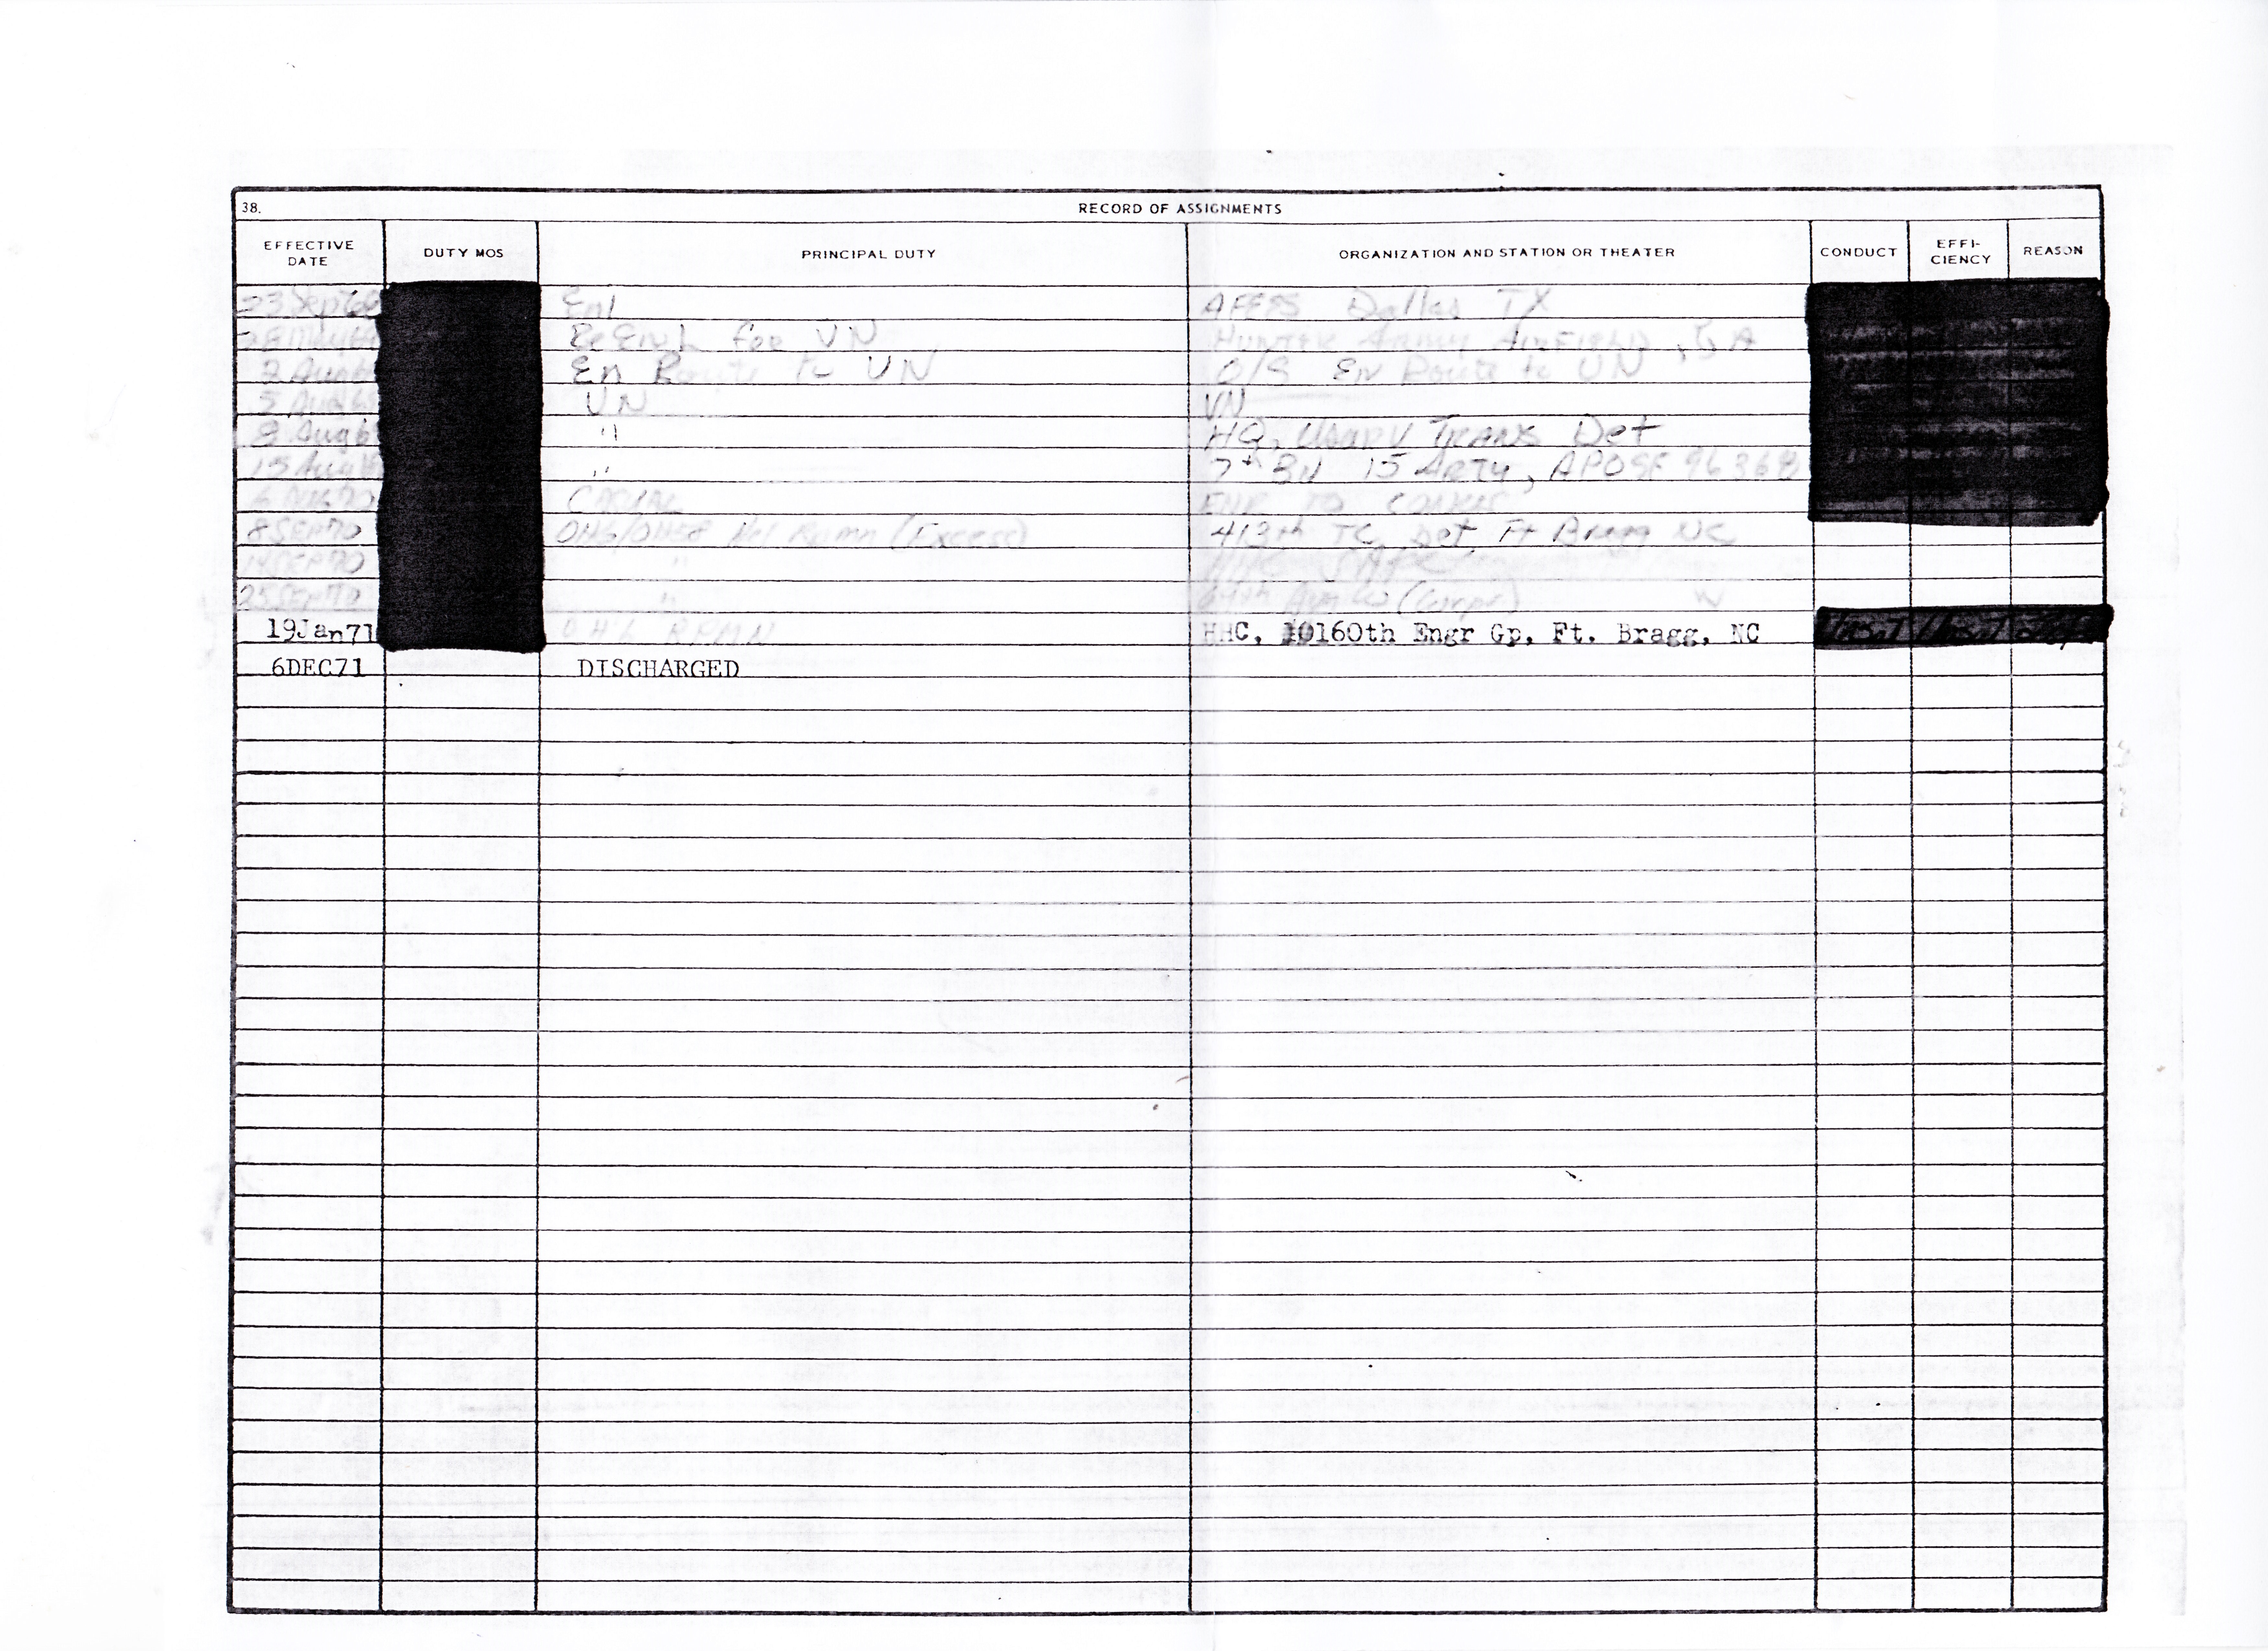 38. RECORD OF ASSIGNMENTS
EFFECTIVE DATE DUTY MOS PRINCIPAL DUTY ORGANIZATION AND STATION OR THEATER CONDUCT EFFI-CIENCY REASON
23 Sep 68 Enl AFEES Dallas TX
for VN HUNTER ARMY AIRFIELD, GA
2 Aug 6 En Route to VN O/S EN Route to VN
5 Aug 69 VN VN
8 Aug 6 " HQ, USARV TRANS Det
15 Aug " 7th BN 15 ARTY, APO SF 96368
70 CASUAL ENR TO CONUS
8 SEP 70 OH6/OH58 Hel Rpmn (Excess) 413th TC Det Ft Bragg NC
14 SEP 70 "
25 SEP 70 "
19Jan71 OH6 RPMN HHC, 10160th Engr Gp, Ft. Bragg, NC
6DEC71 DISCHARGED